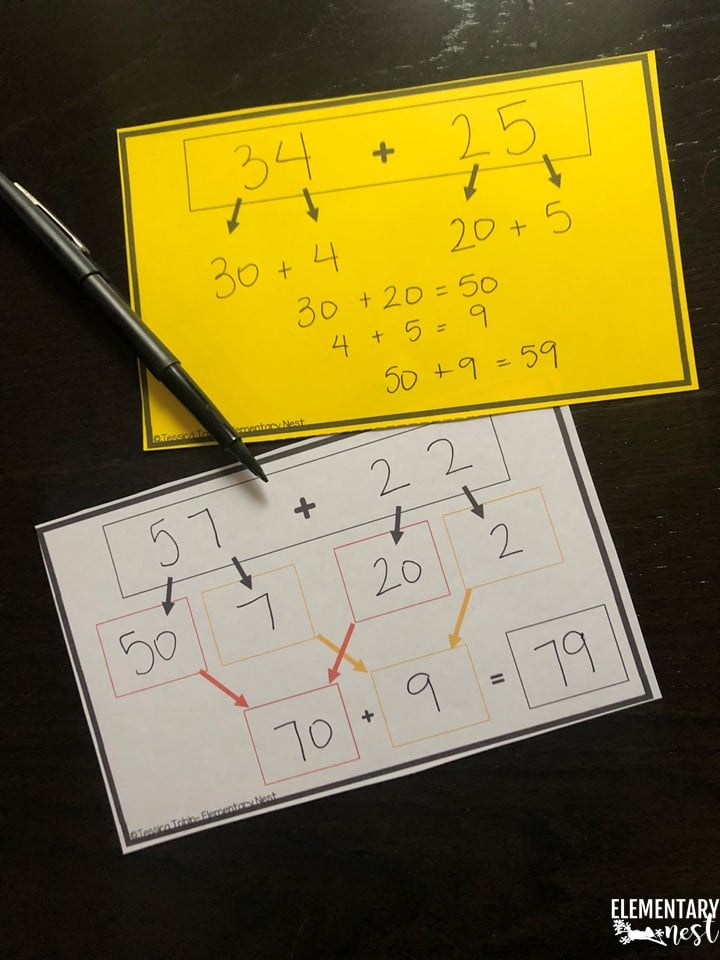 34 + 25
30 + 4 20 + 5
30 + 20 = 50
4 + 5 = 9
50 + 9 = 59
©Tessica Tobin- Elementary Nest
57 + 22
50 7 20 2
70 + 9 = 79
©Tessica Tobin- Elementary Nest
ELEMENTARY
nest